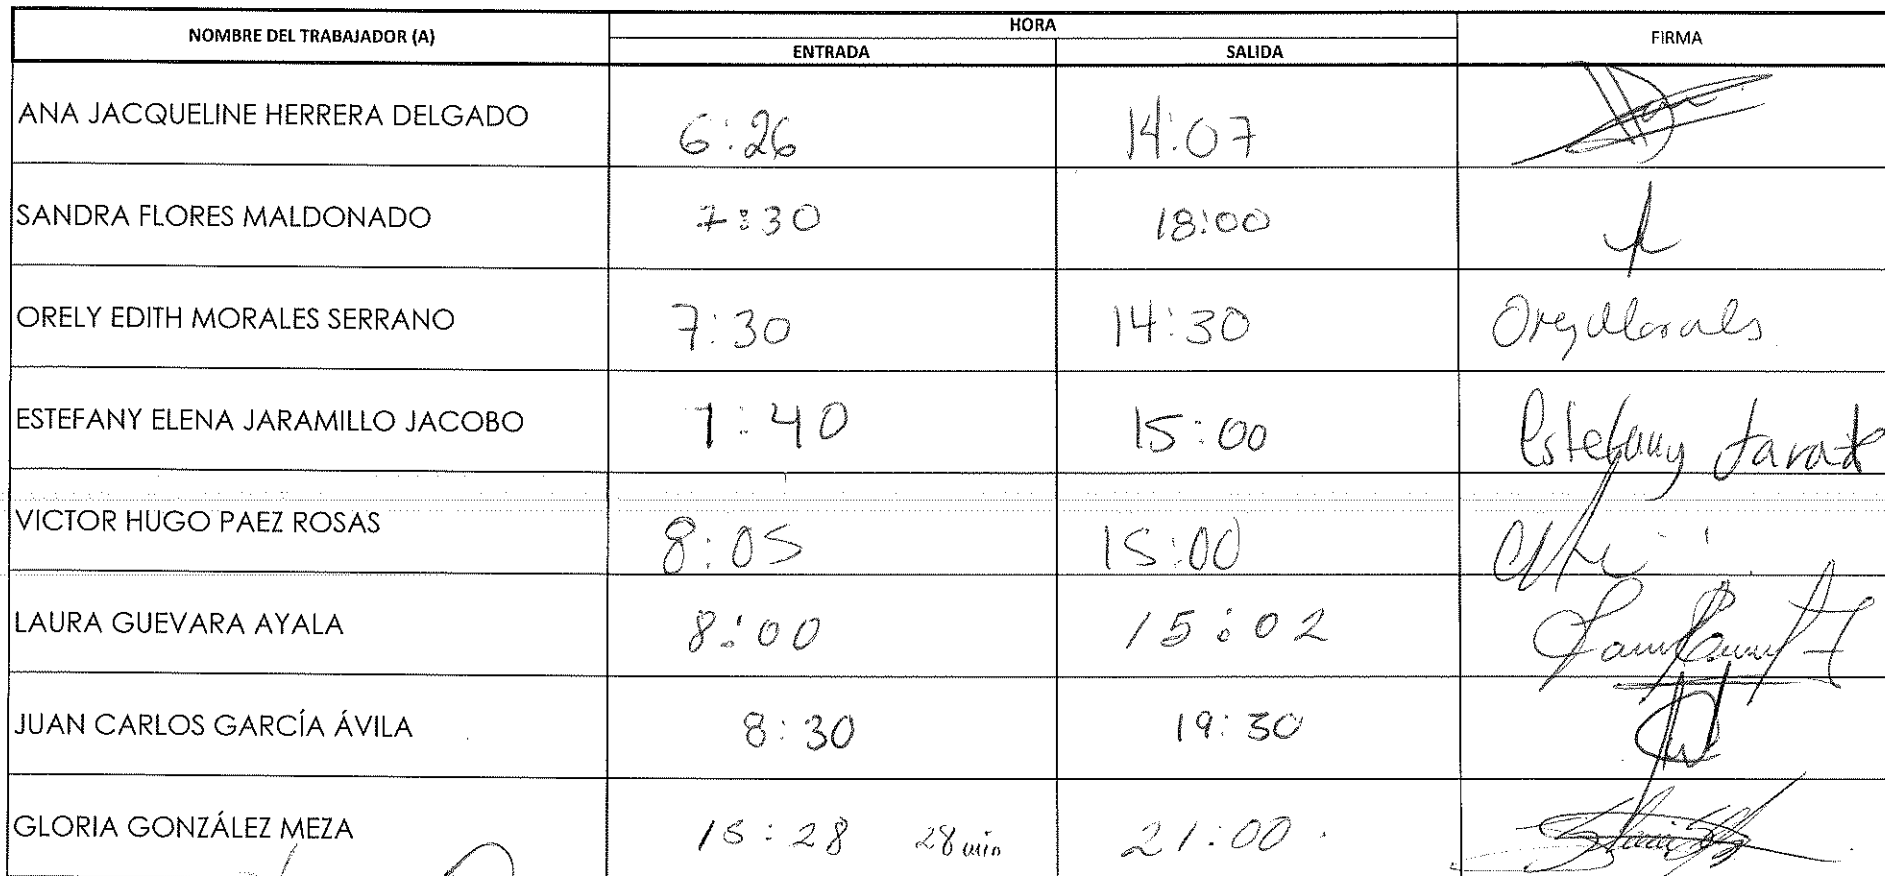 NOMBRE DEL TRABAJADOR (A) HORA FIRMA
ENTRADA SALIDA
ANA JACQUELINE HERRERA DELGADO 6:26 14:07
SANDRA FLORES MALDONADO 7:30 18:00
ORELY EDITH MORALES SERRANO 7:30 14:30
ESTEFANY ELENA JARAMILLO JACOBO 7:40 15:00 Estefany
VICTOR HUGO PAEZ ROSAS 8:05 15:00
LAURA GUEVARA AYALA 8:00 15:02
JUAN CARLOS GARCÍA ÁVILA 8:30 19:30
GLORIA GONZÁLEZ MEZA 15:28 28 min 21:00